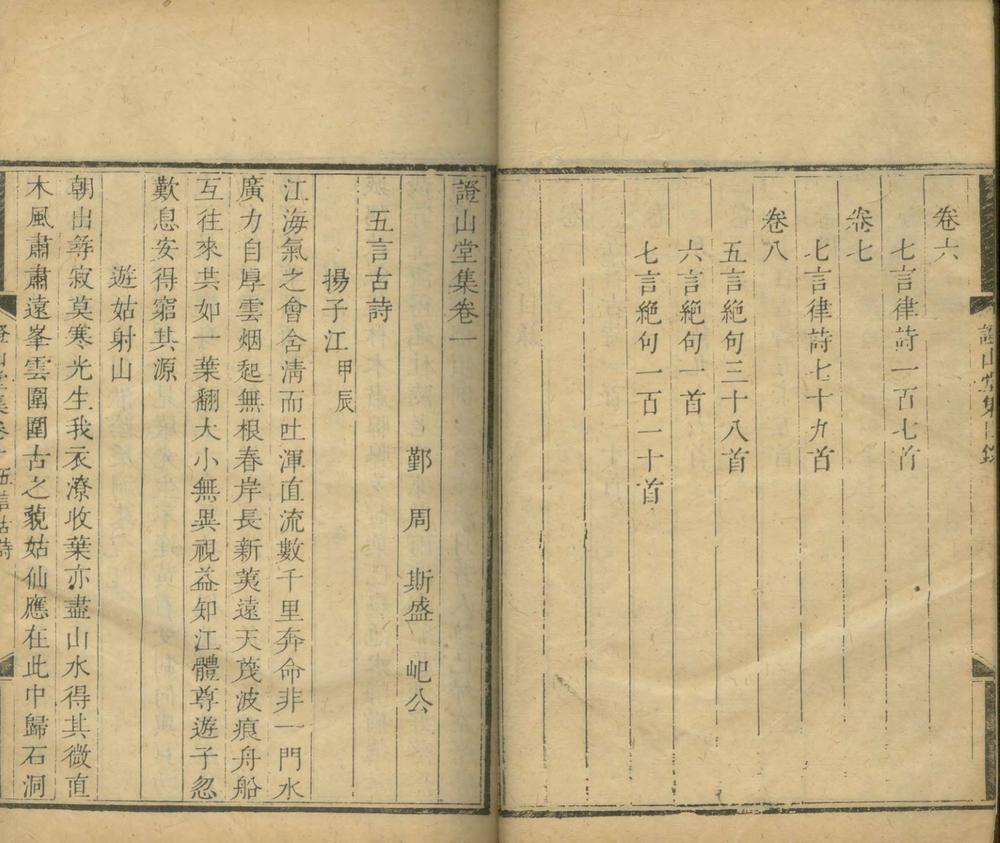 卷六
七言律詩一百七首
卷七
七言律詩七十九首
卷八
五言絕句三十八首
六言絕句一首
七言絕句一百一十首
證山堂集目錄
證山堂集卷一
鄞 周 斯盛 屺公
五言古詩
揚子江甲辰
江海氣之會含清而吐渾直流數千里奔命非一門水
廣力自厚雲烟起無根春岸長新荑遠天茂波痕舟船
互往來共如一葉翻大小無異視益知江體尊遊子忽
歎息安得窮其源
遊姑射山
朝出等寂莫寒光生我衣潦收葉亦盡山水得其微直
木風肅肅遠峯雲圍圍古之藐姑仙應在此中歸石洞
證山堂集卷一五言古詩